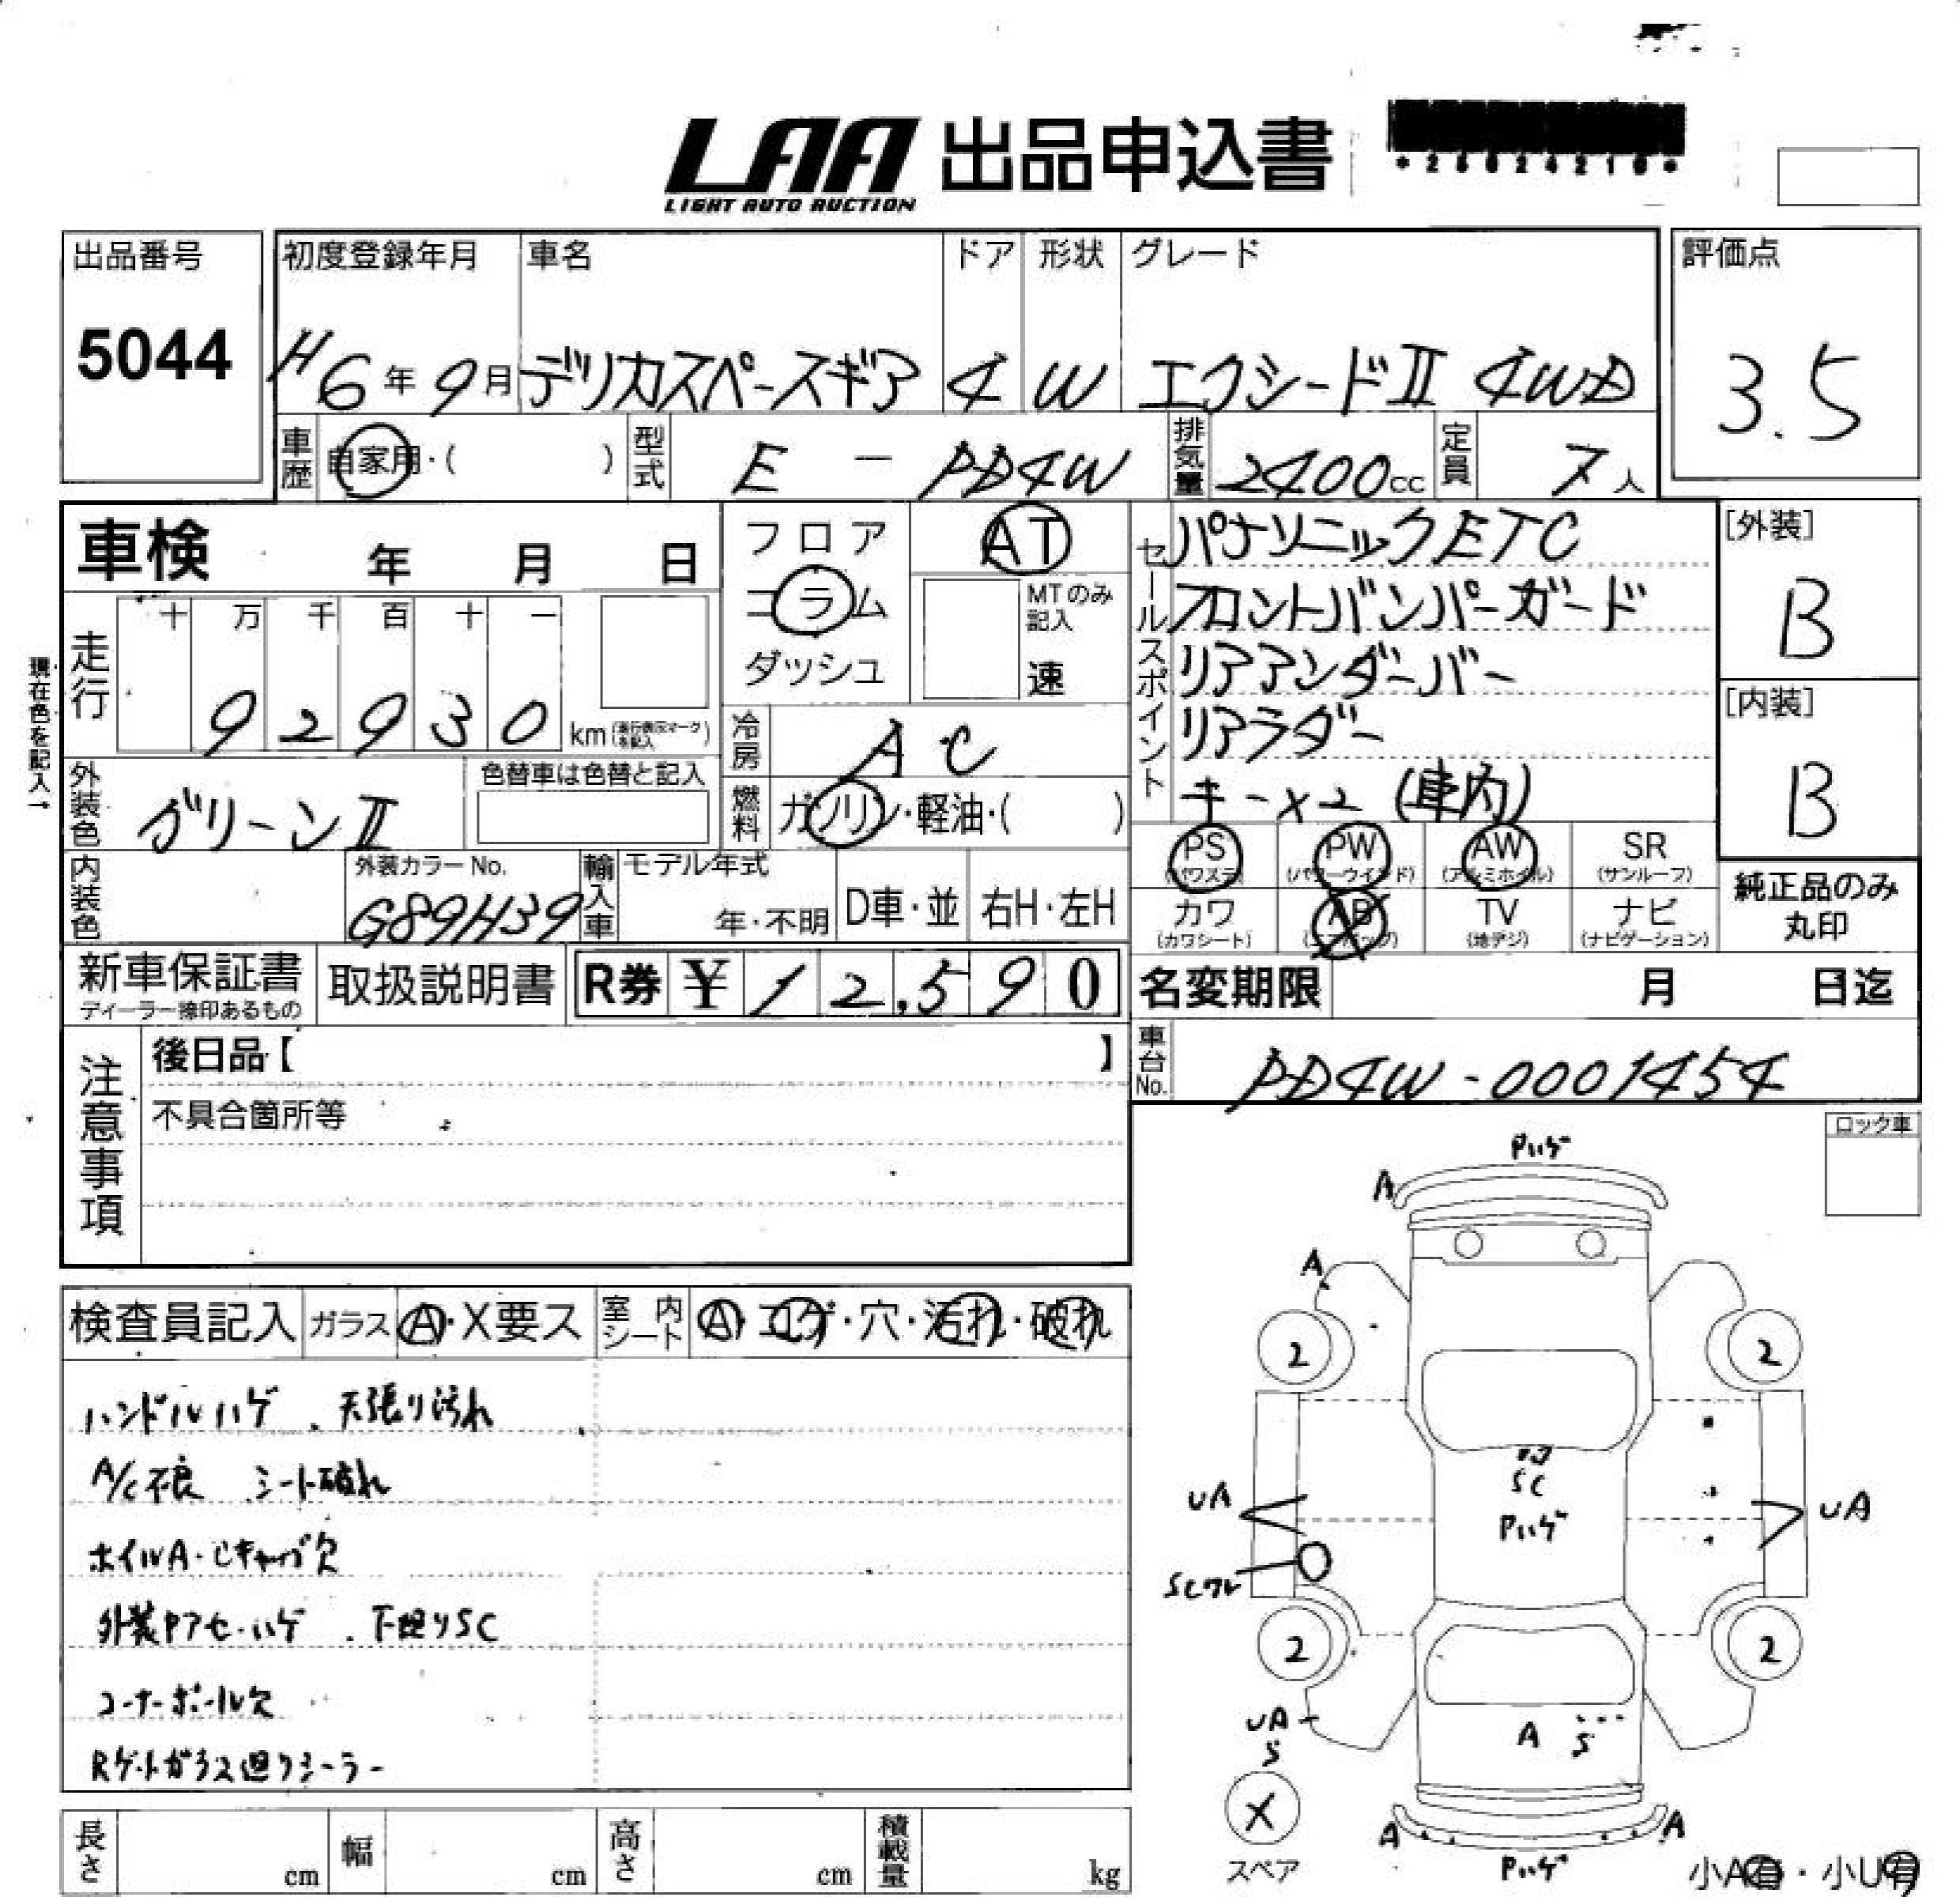 LAA 出品申込書
LIGHT AUTO AUCTION
出品番号 初度登録年月 車名 ドア 形状 グレード 評価点
5044 H6年9月 デリカスペースギア 4 W エクシードII 4WD 3.5
車歴 自家用・( ) 型式 E - PD4W 排気量 2400cc 定員 7人
車検 年 月 日
フロア
コラム
ダッシュ
AT
MTのみ記入
速
セールスポイント
パナソニックETC
フロントバンパーガード
リアアンダーバー
リアラダー
キー×2 (車内)
[外装]
B
[内装]
B
現在色を記入→
走行 十 万 千 百 十 一
9 2 9 3 0 km
冷房 AC
外装色 グリーンII 色替車は色替と記入
燃料 ガソリン・軽油・( )
内装色 外装カラーNo. G89H39
輸入車 モデル年式 年・不明 D車・並 右H・左H
PS (パワステ) PW (パワーウインド) AW (アルミホイル) SR (サンルーフ)
カワ (カワシート) AB (エアバッグ) TV (地デジ) ナビ (ナビゲーション)
純正品のみ
丸印
新車保証書
ディーラー捺印あるもの
取扱説明書
R券 ¥ 12,590
名変期限 月 日迄
注意事項
後日品【 】
不具合箇所等
車台No. PD4W-0001454
ロック車
検査員記入 ガラス A・X要ス 室内シート A・コゲ・穴・汚れ・破れ
ハンドルハゲ、天張り汚れ
A/C不良 シート破れ
ホイルA・Cキャップ欠
外装Pアセ・ハゲ、下廻りSC
コーナーポール欠
Rゲートガラス廻りシーラー
Pハゲ
A
A
2 2
SC
UA Pハゲ UA
2 2
UA
S
A S
X
スペア
A A
Pハゲ
小A有・小U有
長さ cm 幅 cm 高さ cm 積載量 kg